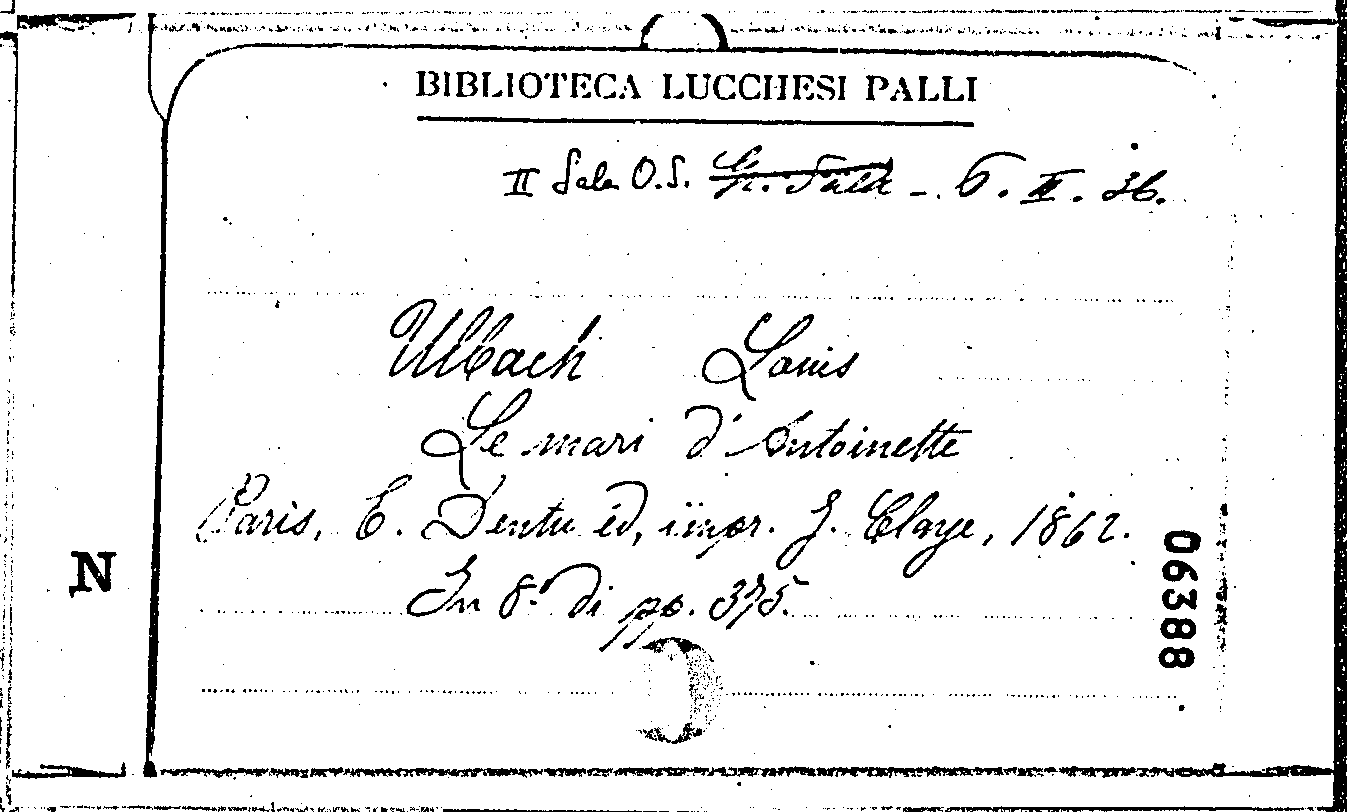 BIBLIOTECA LUCCHESI PALLI
II Sala O.S. Gr. Sala - 6. II. 36.
Ulbach Louis
Le mari d'Antoinette
Paris, E. Dentu ed, impr. J. Claye, 1862.
In 8.º di pp. 375.
N
06388